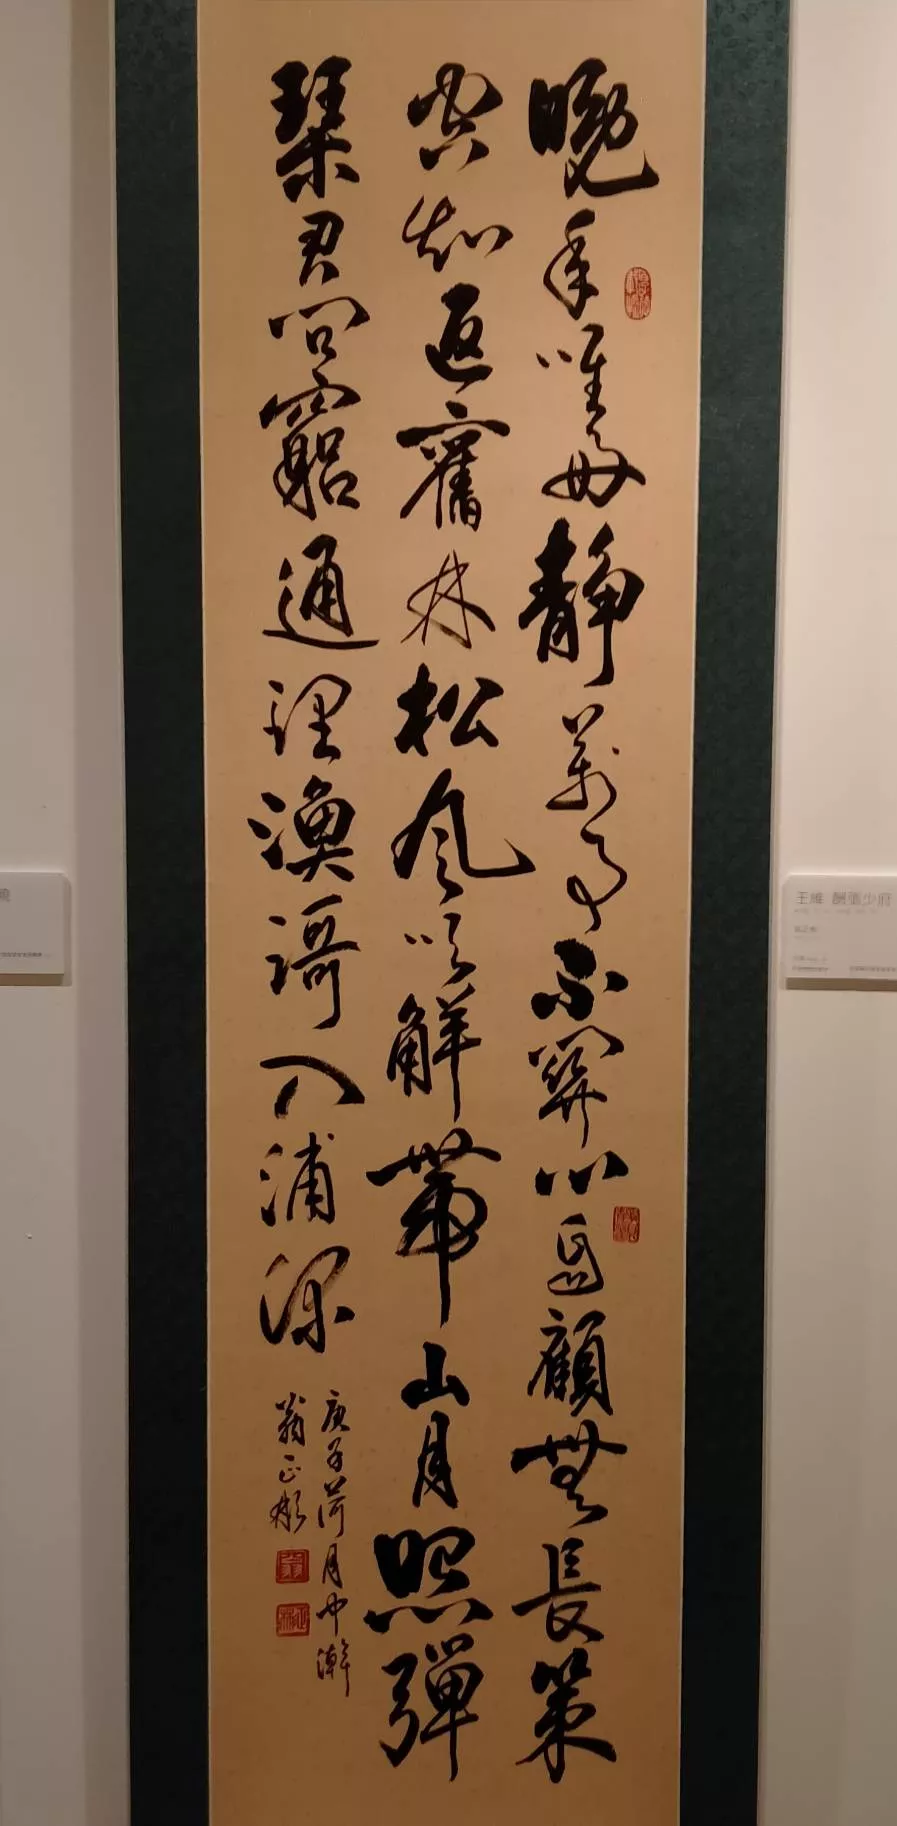 晚年唯好靜萬事不關心自顧無長策
空知返舊林松風吹解帶山月照彈
琴君問竆通理漁謌入浦深
庚子荷月中澣
翁正彬
王維 酬張少府